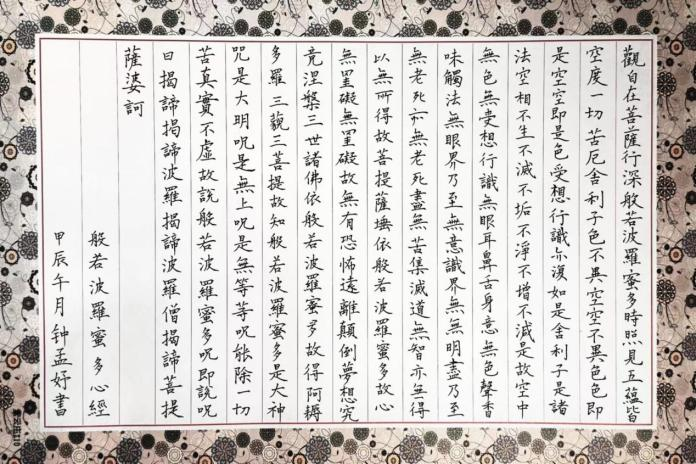 觀自在菩薩行深般若波羅蜜多時照見五蘊皆
空度一切苦厄舍利子色不異空空不異色色即
是空空即是色受想行識亦復如是舍利子是諸
法空相不生不滅不垢不淨不增不減是故空中
無色無受想行識無眼耳鼻舌身意無色聲香
味觸法無眼界乃至無意識界無無明盡乃至
無老死亦無老死盡無苦集滅道無智亦無得
以無所得故菩提薩埵依般若波羅蜜多故心
無罣礙無罣礙故無有恐怖遠離顛倒夢想究
竟涅槃三世諸佛依般若波羅蜜多故得阿耨
多羅三藐三菩提故知般若波羅蜜多是大神
咒是大明咒是無上咒是無等等咒能除一切
苦真實不虛故說般若波羅蜜多咒即說咒
曰揭諦揭諦波羅揭諦波羅僧揭諦菩提
薩婆訶
般若波羅蜜多心經
甲辰午月钟孟妤書